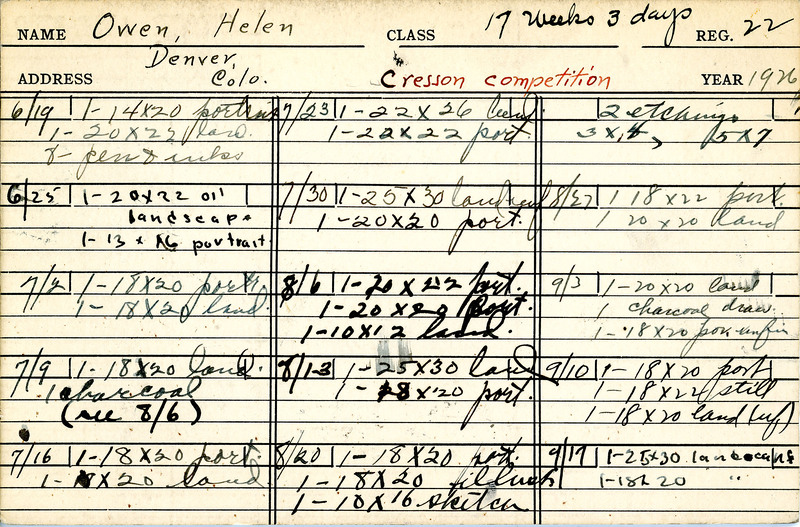 NAME Owen, Helen CLASS 17 Weeks 3 days REG. 22
ADDRESS Denver, Colo. Cresson competition YEAR 1926
6/19 1-14x20 portrait
1-20x22 land.
8-pen & inks
6/25 1-20x22 oil
landscape
1-13 x 16 portrait
7/2 1-18x20 port.
1-18x20 land.
7/9 1-18x20 land.
1 charcoal
(see 8/6)
7/16 1-18x20 port.
1-18x20 land.
7/23 1-22x26 land.
1-22x22 port.
7/30 1-25x30 land unf
1-20x20 port.
8/6 1-20x22 port.
1-20x20 port.
1-10x12 land.
8/13 1-25x30 land
1-18x20 port.
8/20 1-18x20 port.
1-18x20
1-10x16 sketch
2 etchings
3x4, 5x7
8/27 1 18x22 port.
1 20x20 land
9/3 1-20x20 land
1 charcoal draw.
1-18x20 por-unfin
9/10 1-18x20 port
1-18x22 still
1-18x20 land (uf)
9/17 1-25x30 landscape
1-18x20 "